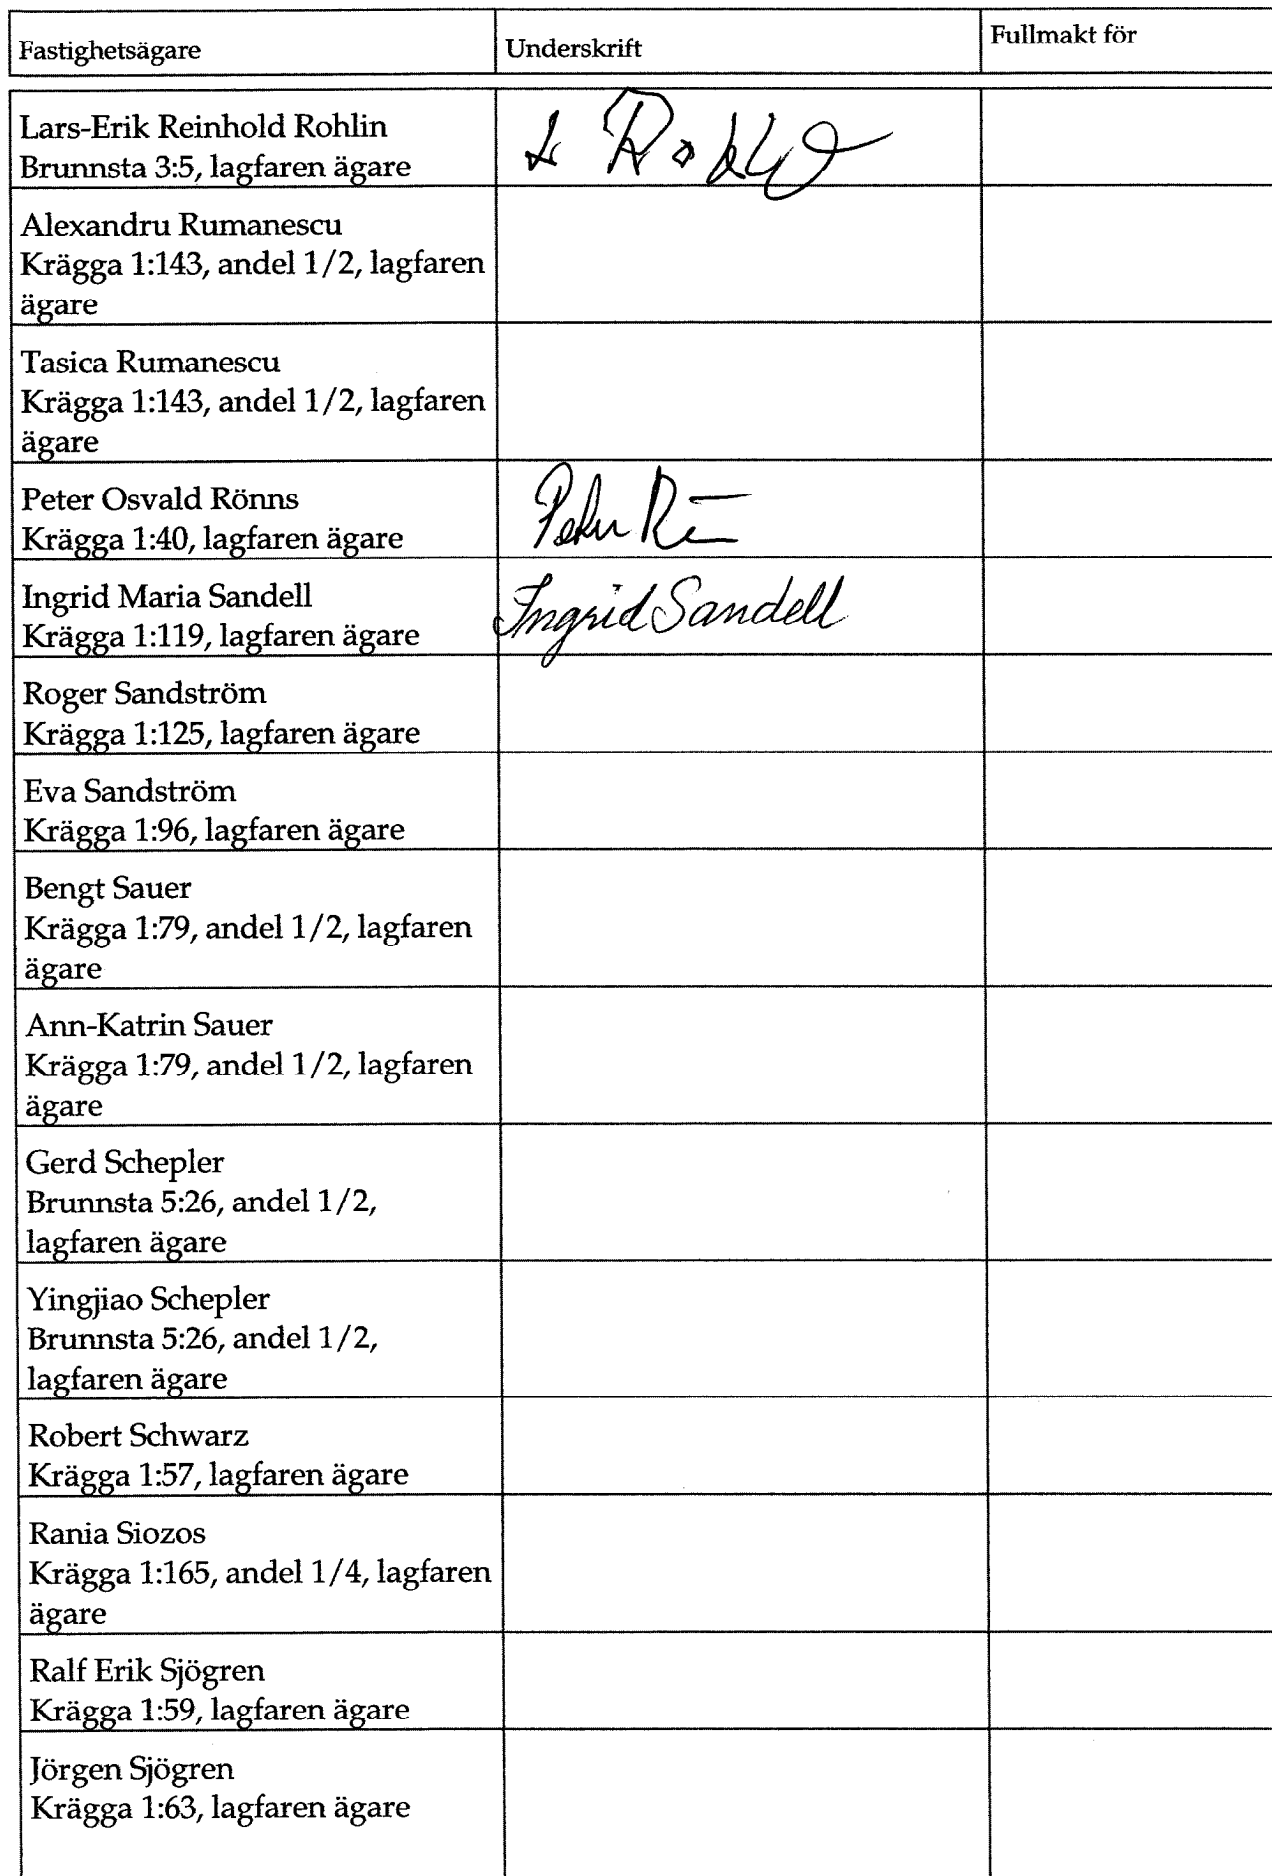 Fastighetsägare Underskrift Fullmakt för
Lars-Erik Reinhold Rohlin
Brunnsta 3:5, lagfaren ägare
Alexandru Rumanescu
Krägga 1:143, andel 1/2, lagfaren
ägare
Tasica Rumanescu
Krägga 1:143, andel 1/2, lagfaren
ägare
Peter Osvald Rönns
Krägga 1:40, lagfaren ägare
Peter
Ingrid Maria Sandell
Krägga 1:119, lagfaren ägare
Ingrid Sandell
Roger Sandström
Krägga 1:125, lagfaren ägare
Eva Sandström
Krägga 1:96, lagfaren ägare
Bengt Sauer
Krägga 1:79, andel 1/2, lagfaren
ägare
Ann-Katrin Sauer
Krägga 1:79, andel 1/2, lagfaren
ägare
Gerd Schepler
Brunnsta 5:26, andel 1/2,
lagfaren ägare
Yingjiao Schepler
Brunnsta 5:26, andel 1/2,
lagfaren ägare
Robert Schwarz
Krägga 1:57, lagfaren ägare
Rania Siozos
Krägga 1:165, andel 1/4, lagfaren
ägare
Ralf Erik Sjögren
Krägga 1:59, lagfaren ägare
Jörgen Sjögren
Krägga 1:63, lagfaren ägare